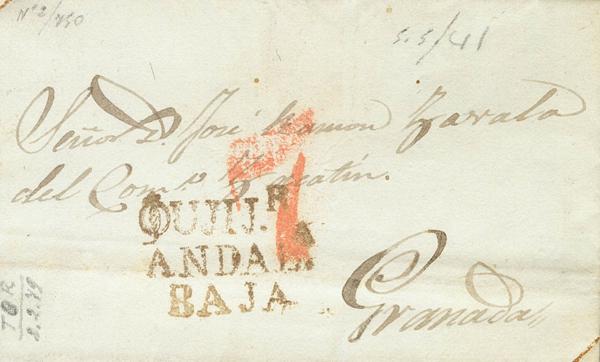 Nº 2/750
5.5/41
Señor D. José Ramon Zavala
del Com.º Zacatin.
7
QUIJ.R
ANDAL.A
BAJA
Granada
TOR
8.2.79